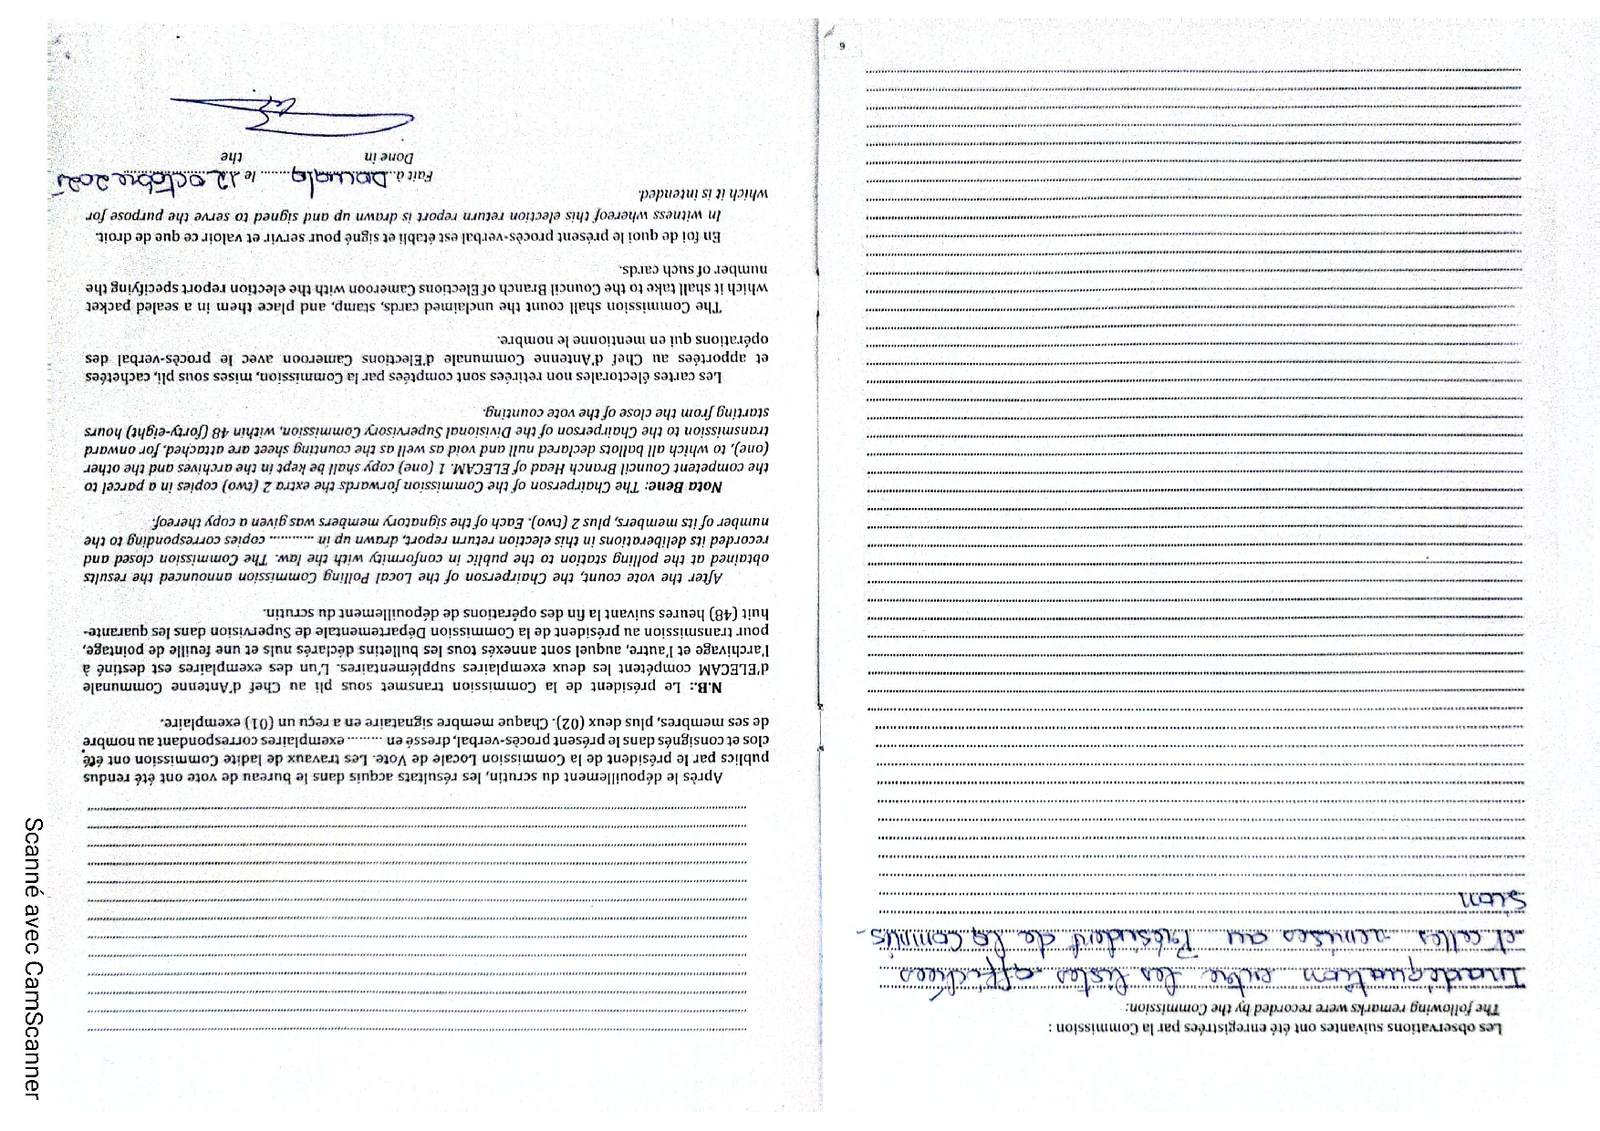 Les observations suivantes ont été enregistrées par la Commission :
The following remarks were recorded by the Commission:
Inadéquation entre les listes affichées
et celles remises au Président de la commis-
sion
9
Après le dépouillement du scrutin, les résultats acquis dans le bureau de vote ont été rendus
publics par le président de la Commission Locale de Vote. Les travaux de ladite Commission ont été
clos et consignés dans le présent procès-verbal, dressé en ......... exemplaires correspondant au nombre
de ses membres, plus deux (02). Chaque membre signataire en a reçu un (01) exemplaire.
N.B.: Le président de la Commission transmet sous pli au Chef d'Antenne Communale
d'ELECAM compétent les deux exemplaires supplémentaires. L'un des exemplaires est destiné à
l'archivage et l'autre, auquel sont annexés tous les bulletins déclarés nuls et une feuille de pointage,
pour transmission au président de la Commission Départementale de Supervision dans les quarante-
huit (48) heures suivant la fin des opérations de dépouillement du scrutin.
After the vote count, the Chairperson of the Local Polling Commission announced the results
obtained at the polling station to the public in conformity with the law. The Commission closed and
recorded its deliberations in this election return report, drawn up in ........... copies corresponding to the
number of its members, plus 2 (two). Each of the signatory members was given a copy thereof.
Nota Bene: The Chairperson of the Commission forwards the extra 2 (two) copies in a parcel to
the competent Council Branch Head of ELECAM. 1 (one) copy shall be kept in the archives and the other
(one), to which all ballots declared null and void as well as the counting sheet are attached, for onward
transmission to the Chairperson of the Divisional Supervisory Commission, within 48 (forty-eight) hours
starting from the close of the vote counting.
Les cartes électorales non retirées sont comptées par la Commission, mises sous pli, cachetées
et apportées au Chef d'Antenne Communale d'Elections Cameroon avec le procès-verbal des
opérations qui en mentionne le nombre.
The Commission shall count the unclaimed cards, stamp, and place them in a sealed packet
which it shall take to the Council Branch of Elections Cameroon with the election report specifying the
number of such cards.
En foi de quoi le présent procès-verbal est établi et signé pour servir et valoir ce que de droit.
In witness whereof this election return report is drawn up and signed to serve the purpose for
which it is intended.
Fait à Douala le 12 octobre 2025
Done in the
Scanné avec CamScanner